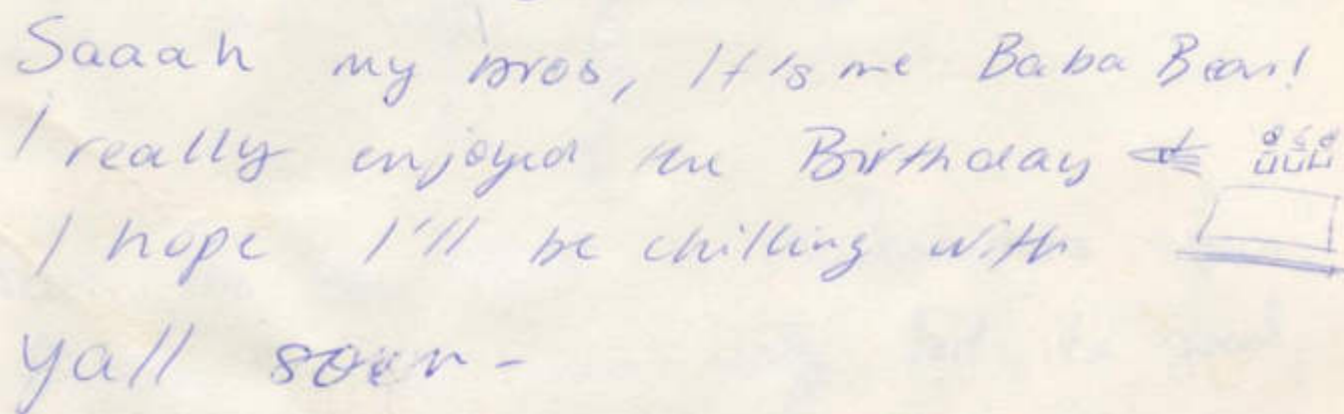 Saaah my bros, It's me Baba Bear!
I really enjoyed the Birthday
I hope I'll be chilling with
yall soon -